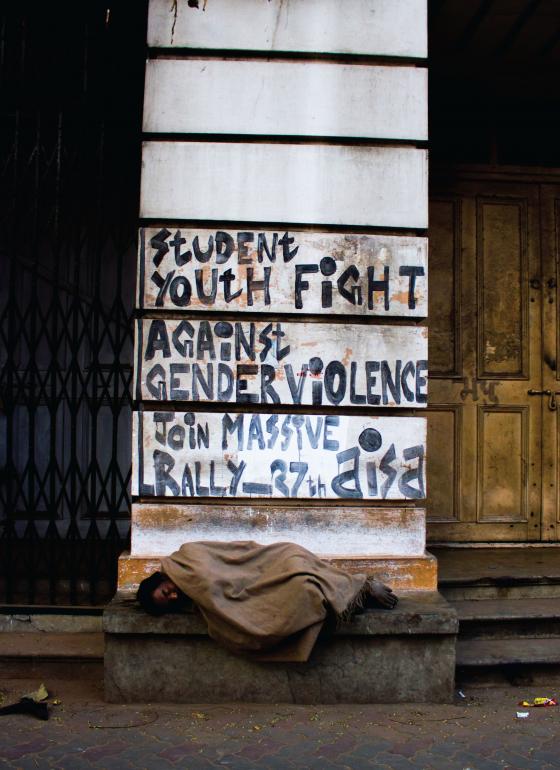 StUDENt
YOUtH FiGHT
AGAiNSt
GENDER ViOLENCE
JOiN MASSIVE
RALLY_27th aisa